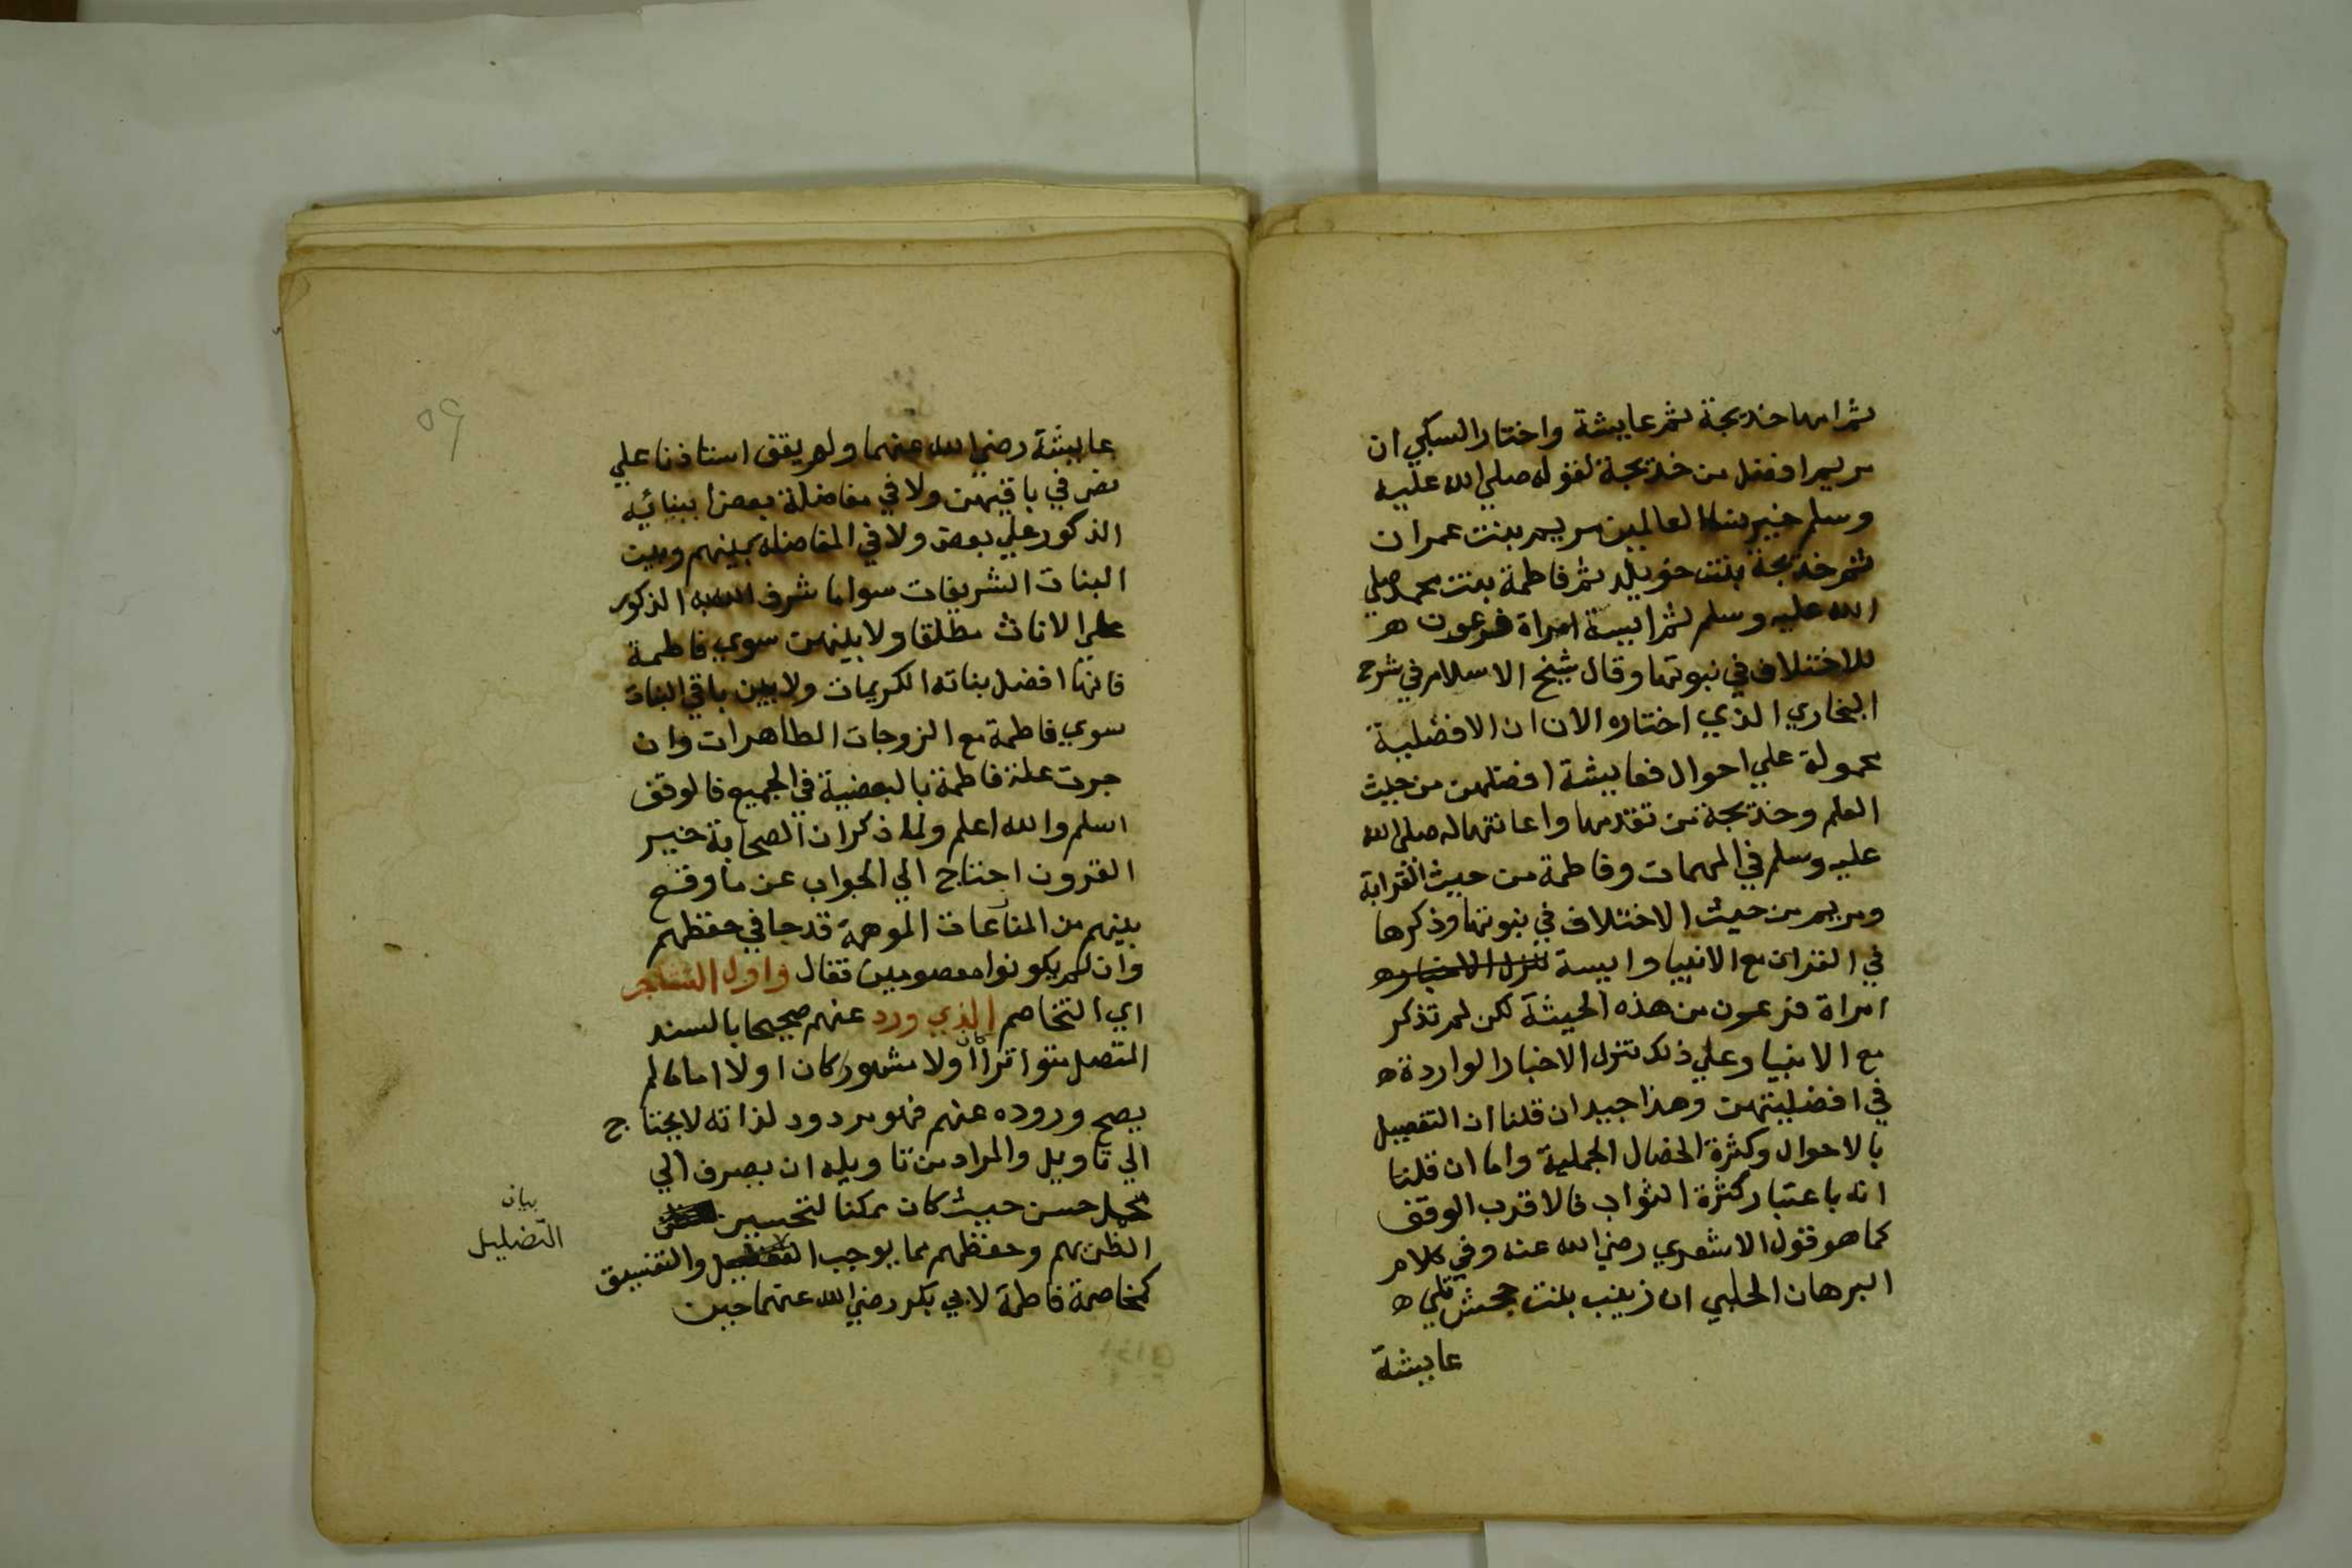 ثم امها خديجة ثم عايشة واختار السبكي ان
مريم افضل من خديجة لقوله صلي الله عليه
وسلم خير نسا العالمين مريم بنت عمران
ثم خديجة بنت خويلد ثم فاطمة بنت محمد صلي
الله عليه وسلم ثم اسية امراة فرعون ه
للاختلاف في نبوتها وقال شيخ الاسلام في شرح
البخاري الذي اختاره الان ان الافضلية
محمولة علي احوال فعايشة افضلهن من حيث
العلم وخديجة من تقدمها واعانتها له صلي الله
عليه وسلم في المهمات وفاطمة من حيث القرابة
ومريم من حيث الاختلاف في نبوتها وذكرها
في القران مع الانبيا واسية تنزل الاخبار ه
امراة فرعون من هذه الحيثة لكن لم تذكر
مع الانبيا وعلي ذلك تنزل الاخبار الواردة ه
في افضليتهن وهذا جيد ان قلنا ان التفضيل
بالاحوال وكثرة الخصال الجملية واما ان قلنا
انه باعتبار كثرة الثواب فالاقرب الوقف
كما هو قول الاشعري رضي الله عنه وفي كلام
البرهان الحلبي ان زينب بنت جحش تلي ه
عايشة
٥٩
عايشة رضي الله عنهما ولم يقف استاذنا علي
نص في باقيهن ولا في مفاضلة بعض ابنائيه
الذكور علي بعض ولا في المفاضلة بينهم وبين
البنات الشريفات سوا ما شرف الله به الذكور
علي الاناث مطلقا ولا بينهن سوي فاطمة
فانها افضل بناته الكريمات ولا بين باقي البنات
سوي فاطمة مع الزوجات الطاهرات وان
جرت علة فاطمة بالبعضية في الجميع فالوقف
اسلم والله اعلم ولما ذكر ان الصحابة خير
القرون احتاج الي الجواب عن ما وقع
بينهم من المنازعات الموهمة قدحا في حقظهم
وان لم يكونوا معصومين فقال واول التشاجر
اي التخاصم الذي ورد عنهم صحيحا بالسند
المتصل متواترا اولا مشهور كان اولا اما ما لم
يصح وروده عنهم فهو مردود لذاته لا يحتاج
الي تاويل والمراد من تاويله ان يصرف الي
محمل حسن حيث كان ممكنا لتحسين
الظن بهم وحفظهم مما يوجب التضليل والتفسيق
كمخاصمة فاطمة لابي بكر رضي الله عنهما حين
بيان
التضليل